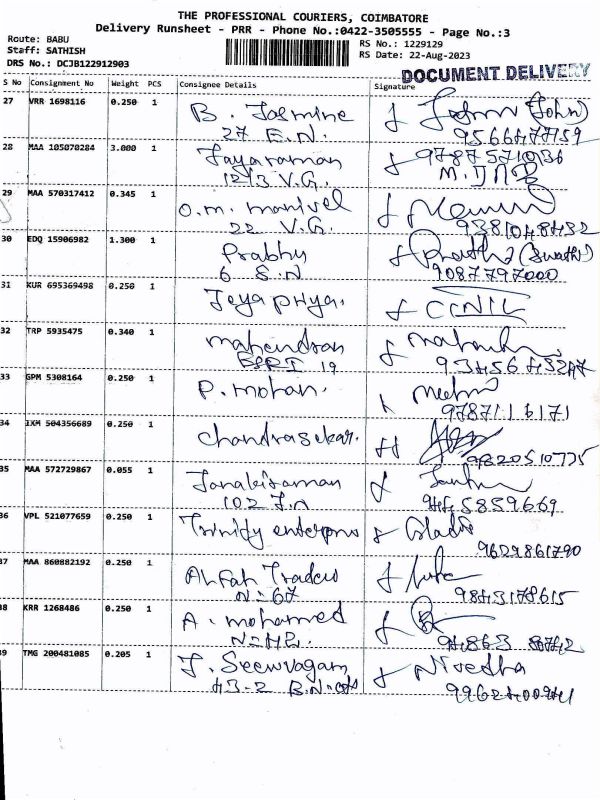 THE PROFESSIONAL COURIERS, COIMBATORE
Delivery Runsheet - PRR - Phone No.:0422-3505555 - Page No.:3
Route: BABU
RS No.: 1229129
Staff: SATHISH
RS Date: 22-Aug-2023
DRS No.: DCJB122912903
DOCUMENT DELIVERY
S No Consignment No Weight PCS Consignee Details Signature
27 VRR 1698116 0.250 1 B. Jasmine (John)
27 E.N. 9566477159
28 MAA 105070284 3.000 1 Jayaraman
1213 V.G.
29 MAA 570317412 0.345 1 O.m. manivel
22 V.G. 9381048432
30 EDQ 15906982 1.300 1 Prabhu (Swathi)
6 S.N 9087797000
31 KUR 695369498 0.250 1 Jeyapriya.
32 TRP 5935475 0.340 1 mahendran
19
33 GPM 5308164 0.250 1 P. mohan.
9787116171
34 IXM 504356689 0.250 1 Chandrasekar.
35 MAA 572729867 0.055 1 Janakiraman
102 J.n 9445859669
36 VPL 521077659 0.250 1 Trinity enterprises
9629861790
37 MAA 860882192 0.250 1 Traders
N-67 9843178615
38 KRR 1268486 0.250 1 A. mohamed
39 TMG 200481085 0.205 1 Nivedha
43-2